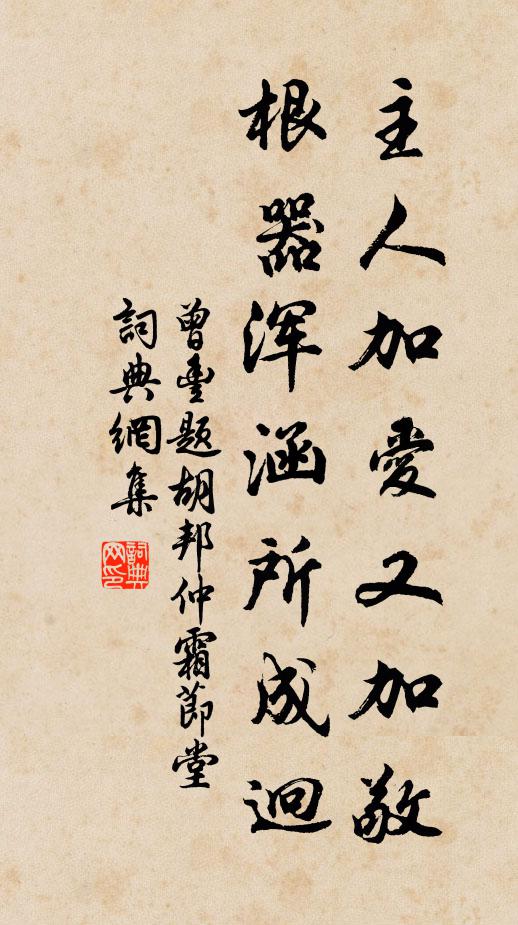 主人加愛又加敬
根器浑涵所成迥
曾豊题胡邦仲霜節堂
詞典網集
詞典網印